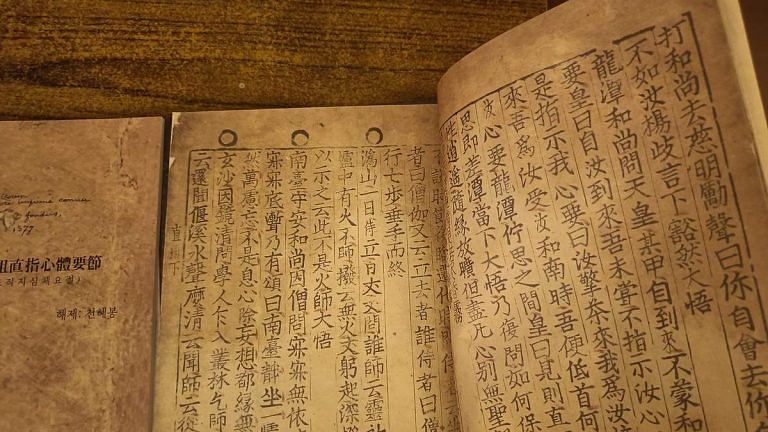 打和尚去慈明勵聲曰你自會去你
不如汝楊歧言下豁然大悟
龍潭和尚問天皇某甲自到來不蒙和
要皇曰自汝到來吾未嘗不指示汝心
是指示我心要曰汝擎茶來我爲汝
來吾爲汝受汝和南時吾便低首何
汝心要龍潭佇思之間皇曰見則直
思即差潭當下大悟乃復問如何保
性逍遙隨緣放曠但盡凡心別無聖
者曰僧伽又云立去者誰侍者曰僧
行七步垂手而終
潙山一日侍立百丈又問誰師云靈
爐中有火不師撥云無火丈躬起深撥
以示之云此不是火師大悟
南臺守安和尚因僧問寂寂無依
寂寂底漸乃有頌曰南臺靜坐一
然萬慮亡不是息心除妄想都緣無
玄沙因鏡清問學人乍入叢林乞師
云還聞偃溪水聲麽清云聞師云從
直指下
1377
祖直指心體要節
조직지심체요절
해제: 천혜봉